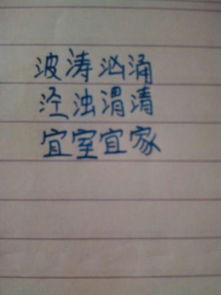 波涛汹涌
泾浊渭清
宜室宜家